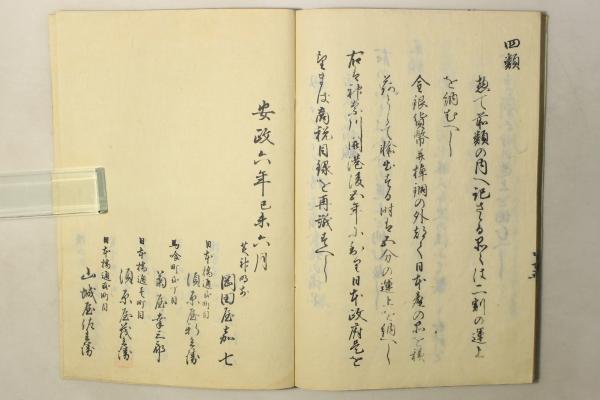 四類
惣て前類の内へ記さゝる品々は二割の運上
を納むへし
金銀貨幣并棹銅の外都て日本産の品を積
荷として輸出する時は五分の運上を納へし
右は神奈川開港後五年に至り日本政府是を
望まは商税目録を再議すへし
安政六年己未六月
芝神明前
岡田屋嘉七
日本橋通貳町目
須原屋新兵衛
馬喰町貳丁目
菊屋幸三郎
日本橋通壱町目
須原屋茂兵衛
日本橋通貳町目
山城屋佐兵衛